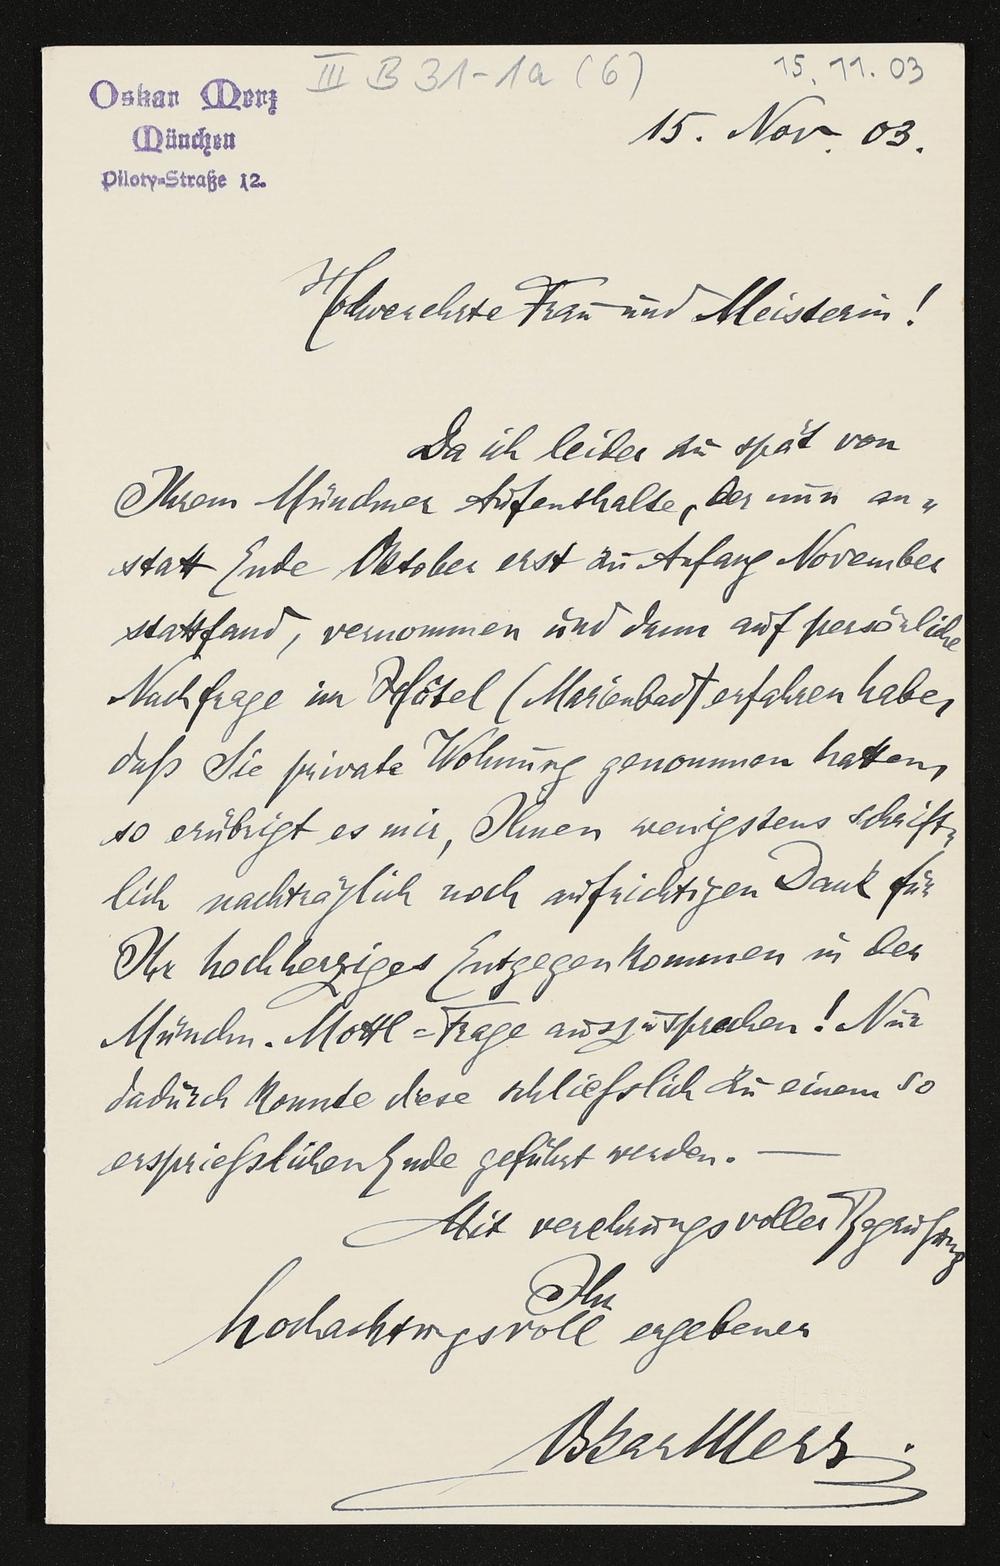 Oskar Merz
München
Piloty=Straße 12.
III B 31-1a (6)
15. 11. 03
15. Nov. 03.
Hochverehrte Frau und Meisterin!
Da ich leider zu spät von
Ihrem Münchner Aufenthalte, der nun an„
statt Ende Oktober erst zu Anfang November
stattfand, vernommen und dann auf persönliche
Nachfrage im Hôtel (Marienbad) erfahren habe,
daß Sie private Wohnung genommen hatten,
so erübrigt es mir, Ihnen wenigstens schrift„
lich nachträglich noch aufrichtigen Dank für
Ihr hochherziges Entgegenkommen in der
Münchn. Mottl=Frage auszusprechen! Nur
dadurch konnte diese schließslich zu einem so
ersprießslichen Ende geführt werden. —
Mit verehrungsvoller Begrüßung
Ihr
hochachtungsvoll ergebener
Oskar Merz.